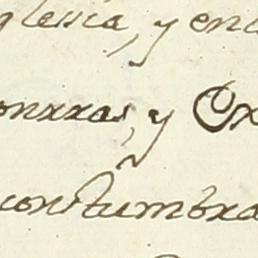 glesia, y enc
onrras, y Ex
costumbra